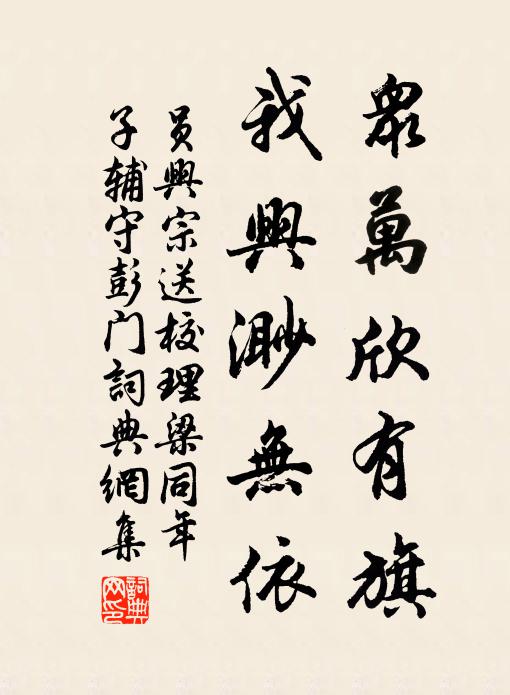 衆萬欣有旗
我興渺無依
員興宗送校理梁同年
子辅守彭门詞典網集
詞典網印